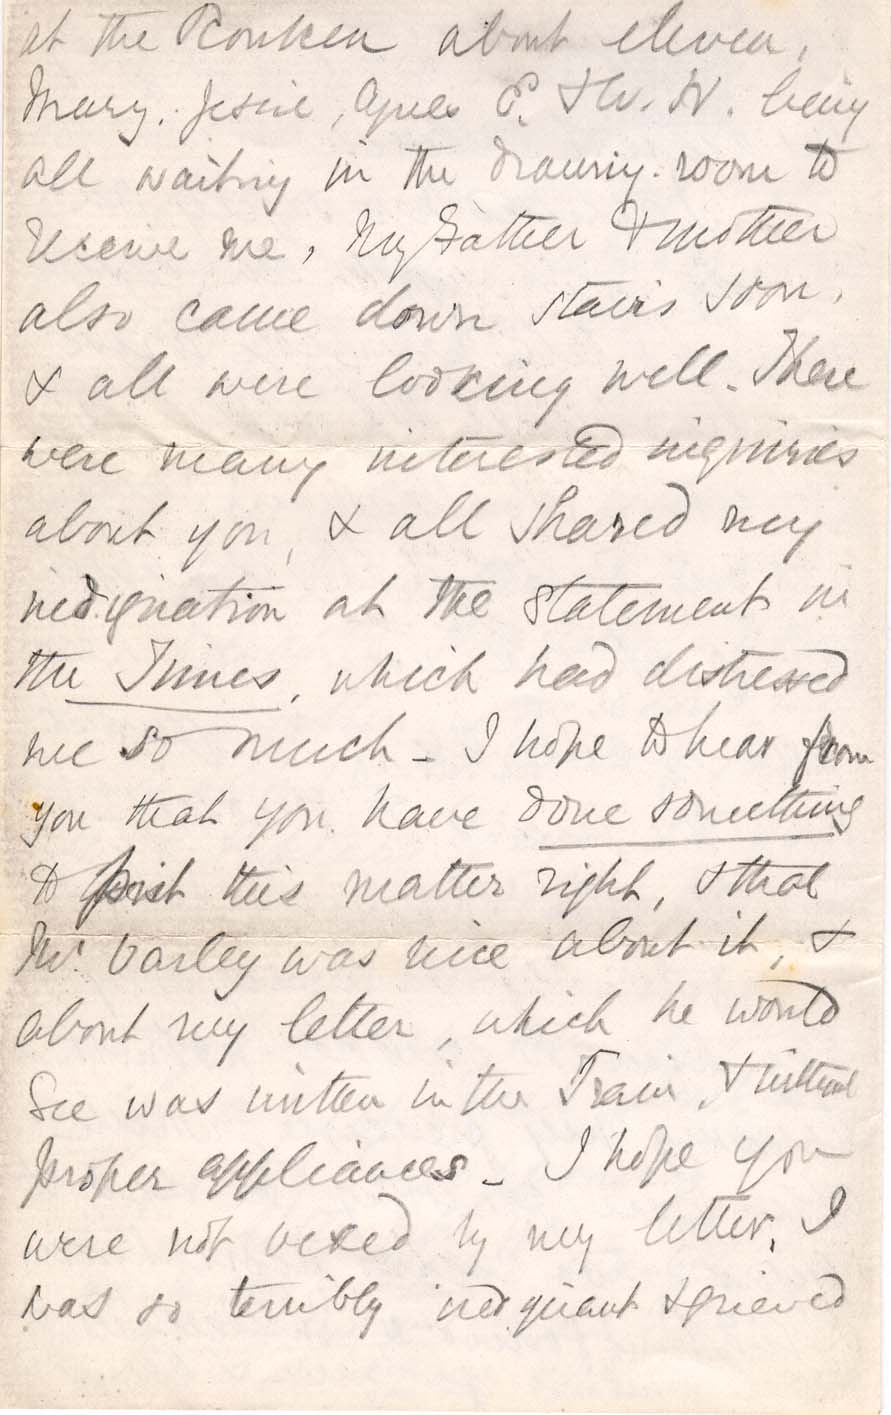 at the Rouken about eleven,
Mary, Jessie, Agnes P. & W. W. being
all waiting in the drawing-room to
receive me, My Father & mother
also came down stairs soon,
& all were looking well. There
were many interested inquiries
about you, & all shared my
indignation at the statement in
the Times, which had distressed
me so much - I hope to hear from
you that you have done something
to put this matter right, & that
Mr. Varley was nice about it, &
about my letter, which he would
See was written in the Train, & without
proper appliances - I hope you
were not vexed by my letter, I
was so terribly indignant & grieved